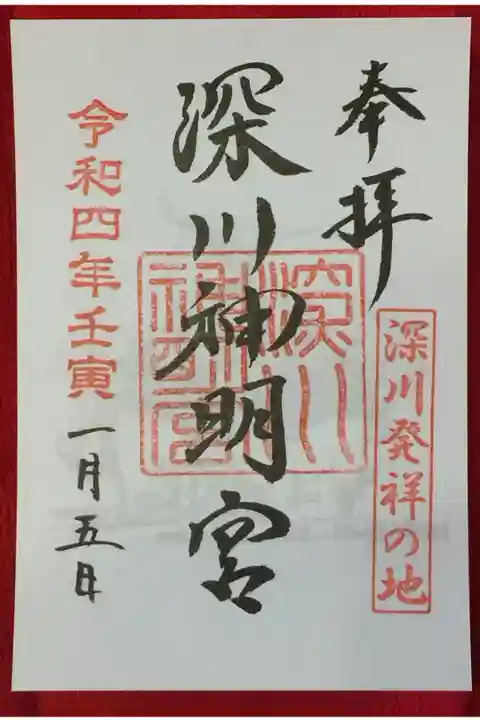 奉拝
深川発祥の地
深川神明宮
深川神明宮
令和四年壬寅一月五日